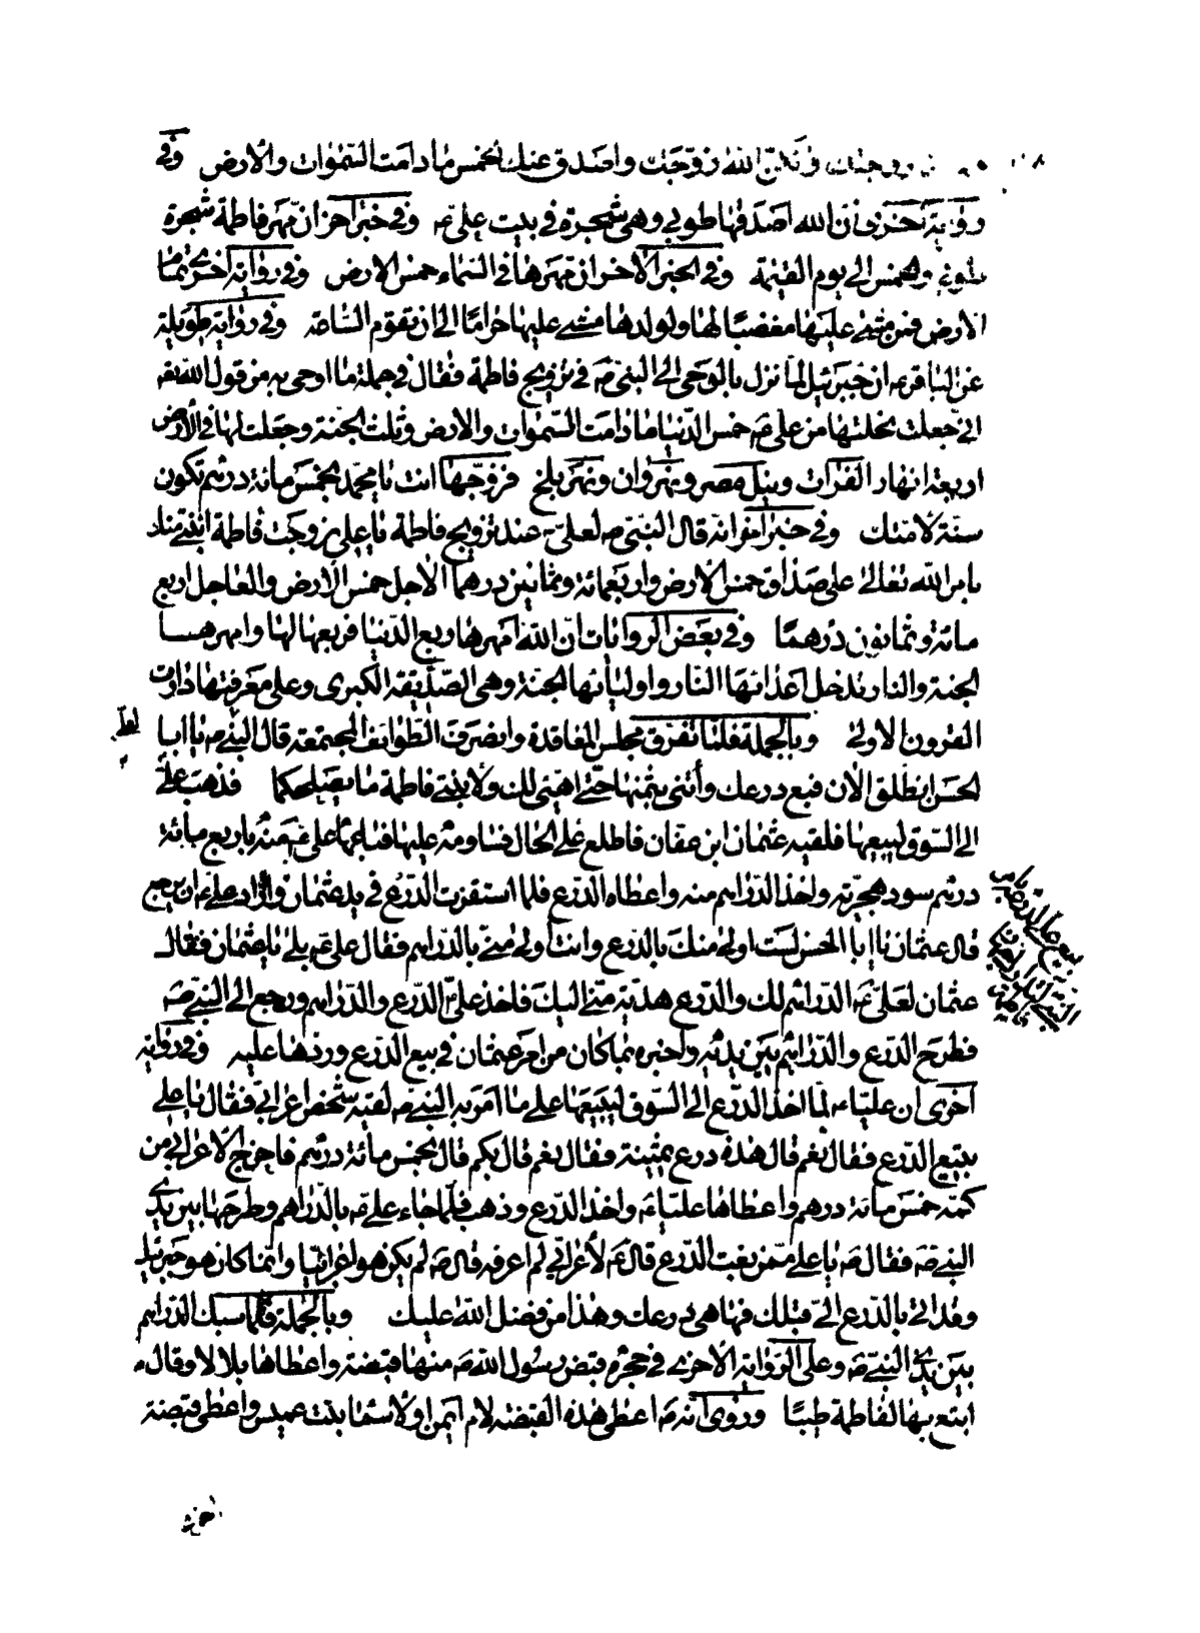 زوجتك ولكن الله زوجك واصدق عنك الخمس مادامت السموات والارض وفي
رواية اخرى ان الله اصدقها طوبى وهى شجرة في بيت علي ع وفي خبر اخر ان مهر فاطمة شجرة
طوبى والخمس الى يوم القيمة وفي الخبر الاخر ان مهرها في السماء خمس الارض وفي رواية اخرى تمام
الارض فمن مشى عليها مغضبا لها ولولدها مشى عليها حراما الى ان تقوم الساعة وفي رواية طويلة
عن الباقر ع ان جبرئيل لما نزل بالوحى الى النبي ص في تزويج فاطمة فقال في جملة ما اوحى به من قول الله تعالى
اني جعلت نحلتها من علي ع خمس الدنيا مادامت السموات والارض وثلث الجنة وجعلت لها في الارض
اربعة انهار الفرات ونيل مصر ونهروان ونهر بلخ فزوجها انت يا محمد بخمس مائة درهم تكون
سنة لامتك وفي خبر اخر انه قال النبي ص لعلي ع عند تزويج فاطمة يا علي زوجت فاطمة ابنتي منك
بامر الله تعالى على صداق خمس الارض واربعمائة وثمانين درهما الاجل خمس الارض والعاجل اربع
مائة وثمانون درهما وفي بعض الروايات ان الله امهرها ربع الدنيا فربعها لها وامهرها
الجنة والنار تدخل اعدائها النار واوليائها الجنة وهى الصديقة الكبرى وعلى معرفتها دارت
القرون الاولى وبالجملة فلما تفرق مجلس المعاقدة وانصرف الطوائف المجتمعة قال النبي ص يا ابا
الحسن انطلق الان فبع درعك وأتنى بثمنها حتى اهيئ لك ولابنتى فاطمة ما يصلحكما فذهب علي
الى السوق لبيعها فلقيه عثمان ابن عفان فاطلع على الحال فساومه عليها فباعها علي ع منه باربع مائة
درهم سود هجرية واخذ الدراهم منه واعطاه الدرع فلما استقرت الدرع في يد عثمان واراد علي ع ان يرجع
قال عثمان يا ابا الحسن لست اولى منك بالدرع وانت اولى منى بالدراهم فقال علي ع بلى يا عثمان فقال
عثمان لعلي ع الدراهم لك والدرع هدية منى اليك فاخذ علي ع الدرع والدراهم ورجع الى النبي ص
فطرح الدرع والدراهم بين يديه واخبره بما كان من امر عثمان في بيع الدرع وردها عليه وفي رواية
اخرى ان عليا ع لما اخذ الدرع الى السوق ليبيعها على ما امر به النبي ص لقيه شخص اعرابي فقال يا علي
تبيع الدرع فقال نعم قال هذه درع ثمينة فقال نعم قال بكم قال بخمس مائة درهم فاخرج الاعرابي من
كمه خمس مائة درهم واعطاها عليا ع واخذ الدرع وذهب فلما جاء علي ع بالدراهم وطرحها بين يدي
النبي ص فقال ص يا علي ممن بعت الدرع قال ع لاعرابي لم اعرفه قال ص لم يكن هو اعرابيا وانما كان هو جبرئيل
وقد اتى بالدرع الى قبلك فها هى درعك وهذا من فضل الله عليك وبالجملة فلما سبك الدراهم
بين يدي النبي ص وعلى الرواية الاخرى في حجره قبض رسول الله ص منها قبضة واعطاها بلالا وقال
ابتع بها لفاطمة طيبا وروى انه ص اعطى هذه القبضة لام ايمن او لاسماء بنت عميس واعطى قبضة
اخرى